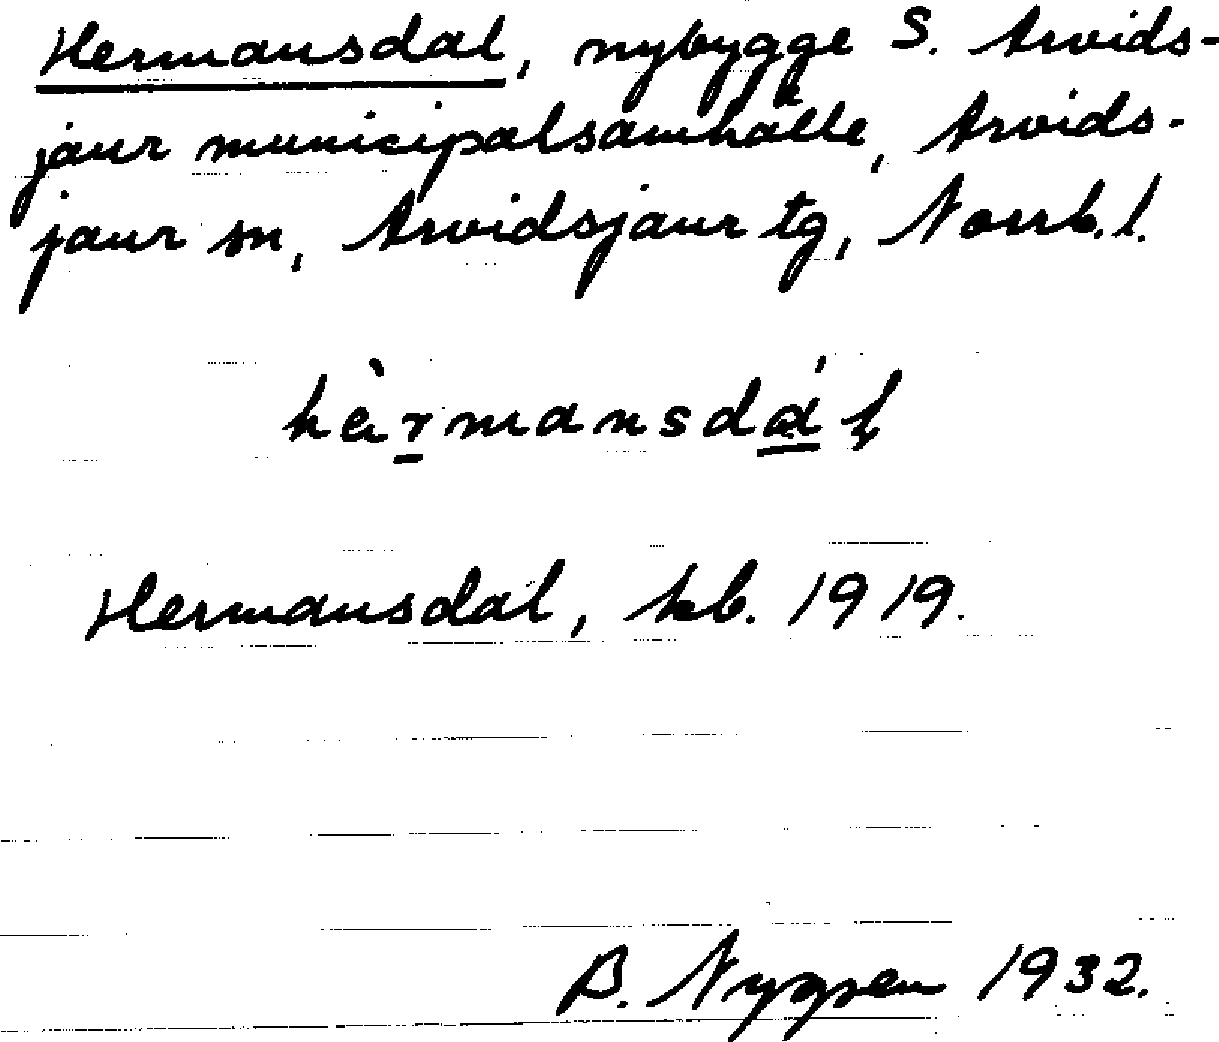 Hermansdal, nybygge S. Arvids-
jaur municipalsamhälle, Arvids-
jaur sn, Arvidsjaur tg, Norrb. l.
hàrmansdál
Hermansdal, kb. 1919.
B. Nygren 1932.